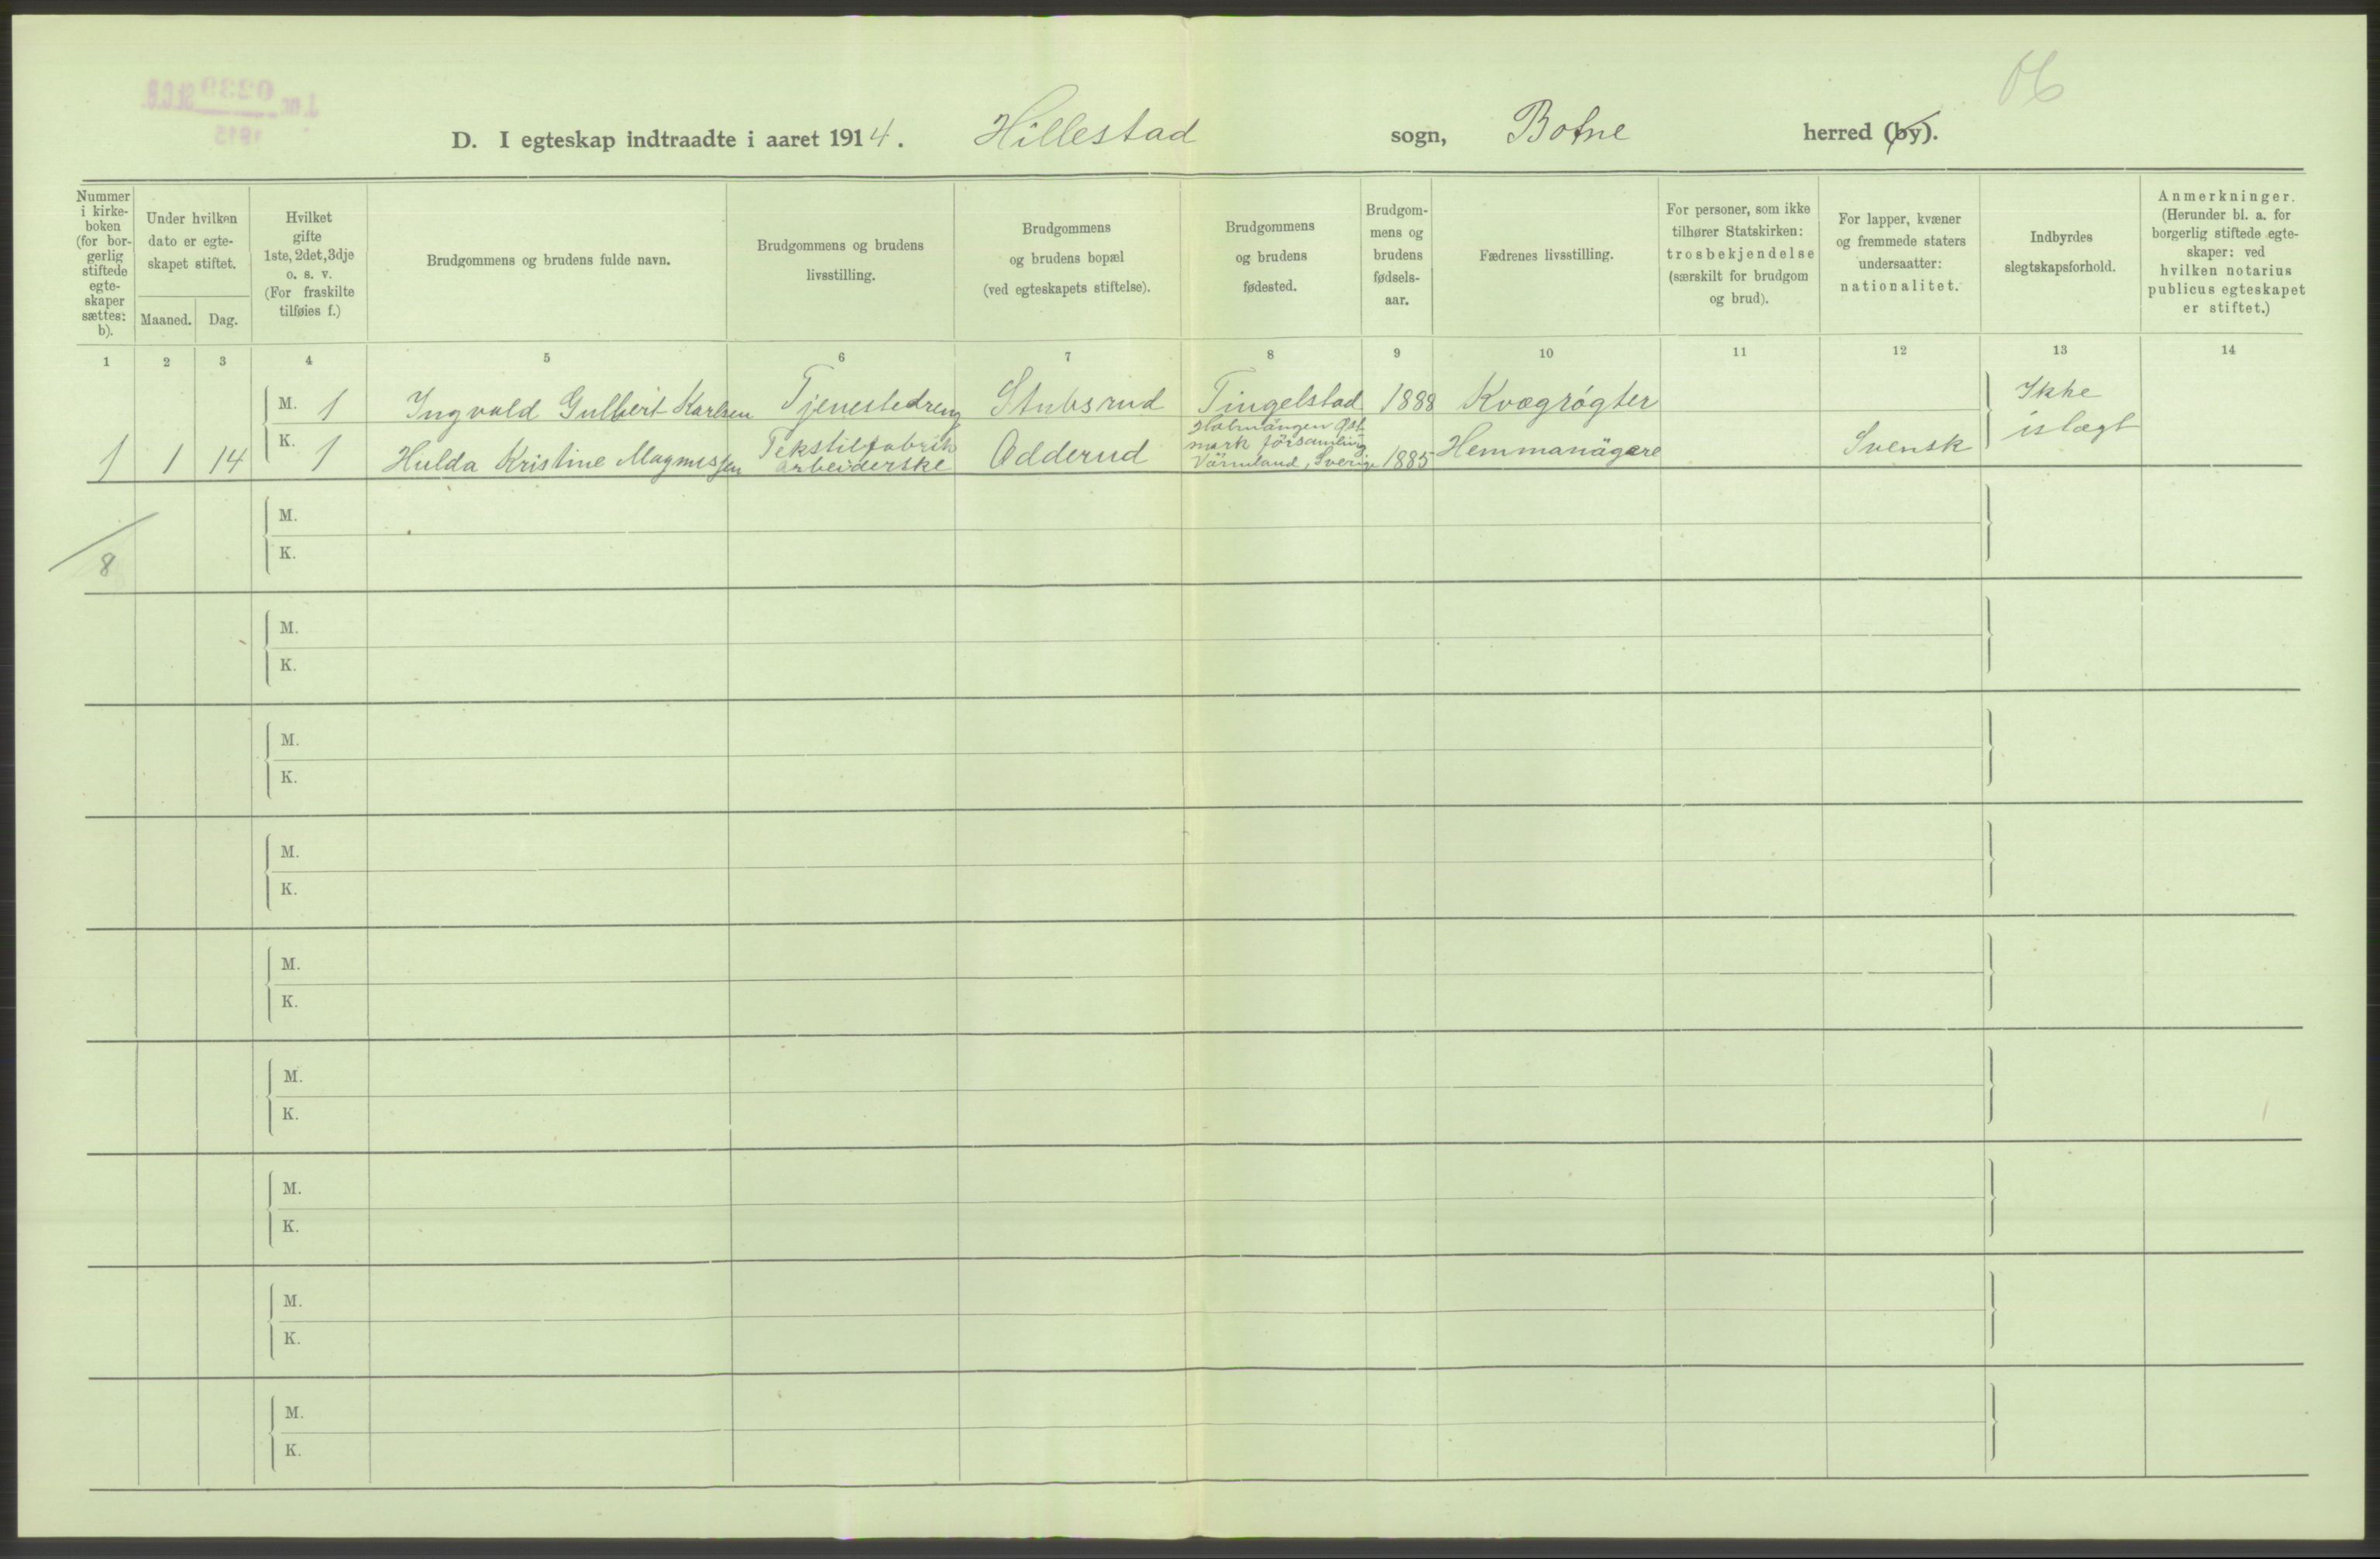 D. I egteskap indtraadte i aaret 1914. Hillestad sogn, Botne herred (by).
Nummer i kirke-boken (for bor-gerlig stiftede egte-skaper sættes: b).
Under hvilken dato er egte-skapet stiftet.
Maaned. Dag.
Hvilket gifte 1ste, 2det, 3dje o. s. v. (For fraskilte tilføies f.)
Brudgommens og brudens fulde navn.
Brudgommens og brudens livsstilling.
Brudgommens og brudens bopæl (ved egteskapets stiftelse).
Brudgommens og brudens fødested.
Brudgom-mens og brudens fødsels-aar.
Fædrenes livsstilling.
For personer, som ikke tilhører Statskirken: trosbekjendelse (særskilt for brudgom og brud).
For lapper, kvæner og fremmede staters undersaatter: nationalitet.
Indbyrdes slegtskapsforhold.
Anmerkninger. (Herunder bl. a. for borgerlig stiftede egte-skaper: ved hvilken notarius publicus egteskapet er stiftet.)
1 2 3 4 5 6 7 8 9 10 11 12 13 14
M. 1 Ingvald Gulbert Karlsen Tjenestedreng Stubsrud Tingelstad 1888 Kvægrøgter Ikke
1 1 14 K. 1 Hulda Kristine Magnussen Tekstilfabrik Odderud Öst
mark församling islægt
arbeiderske Värmland, Sverige 1885 Hemmanägare Svensk
M.
8 K.
M.
K.
M.
K.
M.
K.
M.
K.
M.
K.
M.
K.
M.
K.
M.
K.